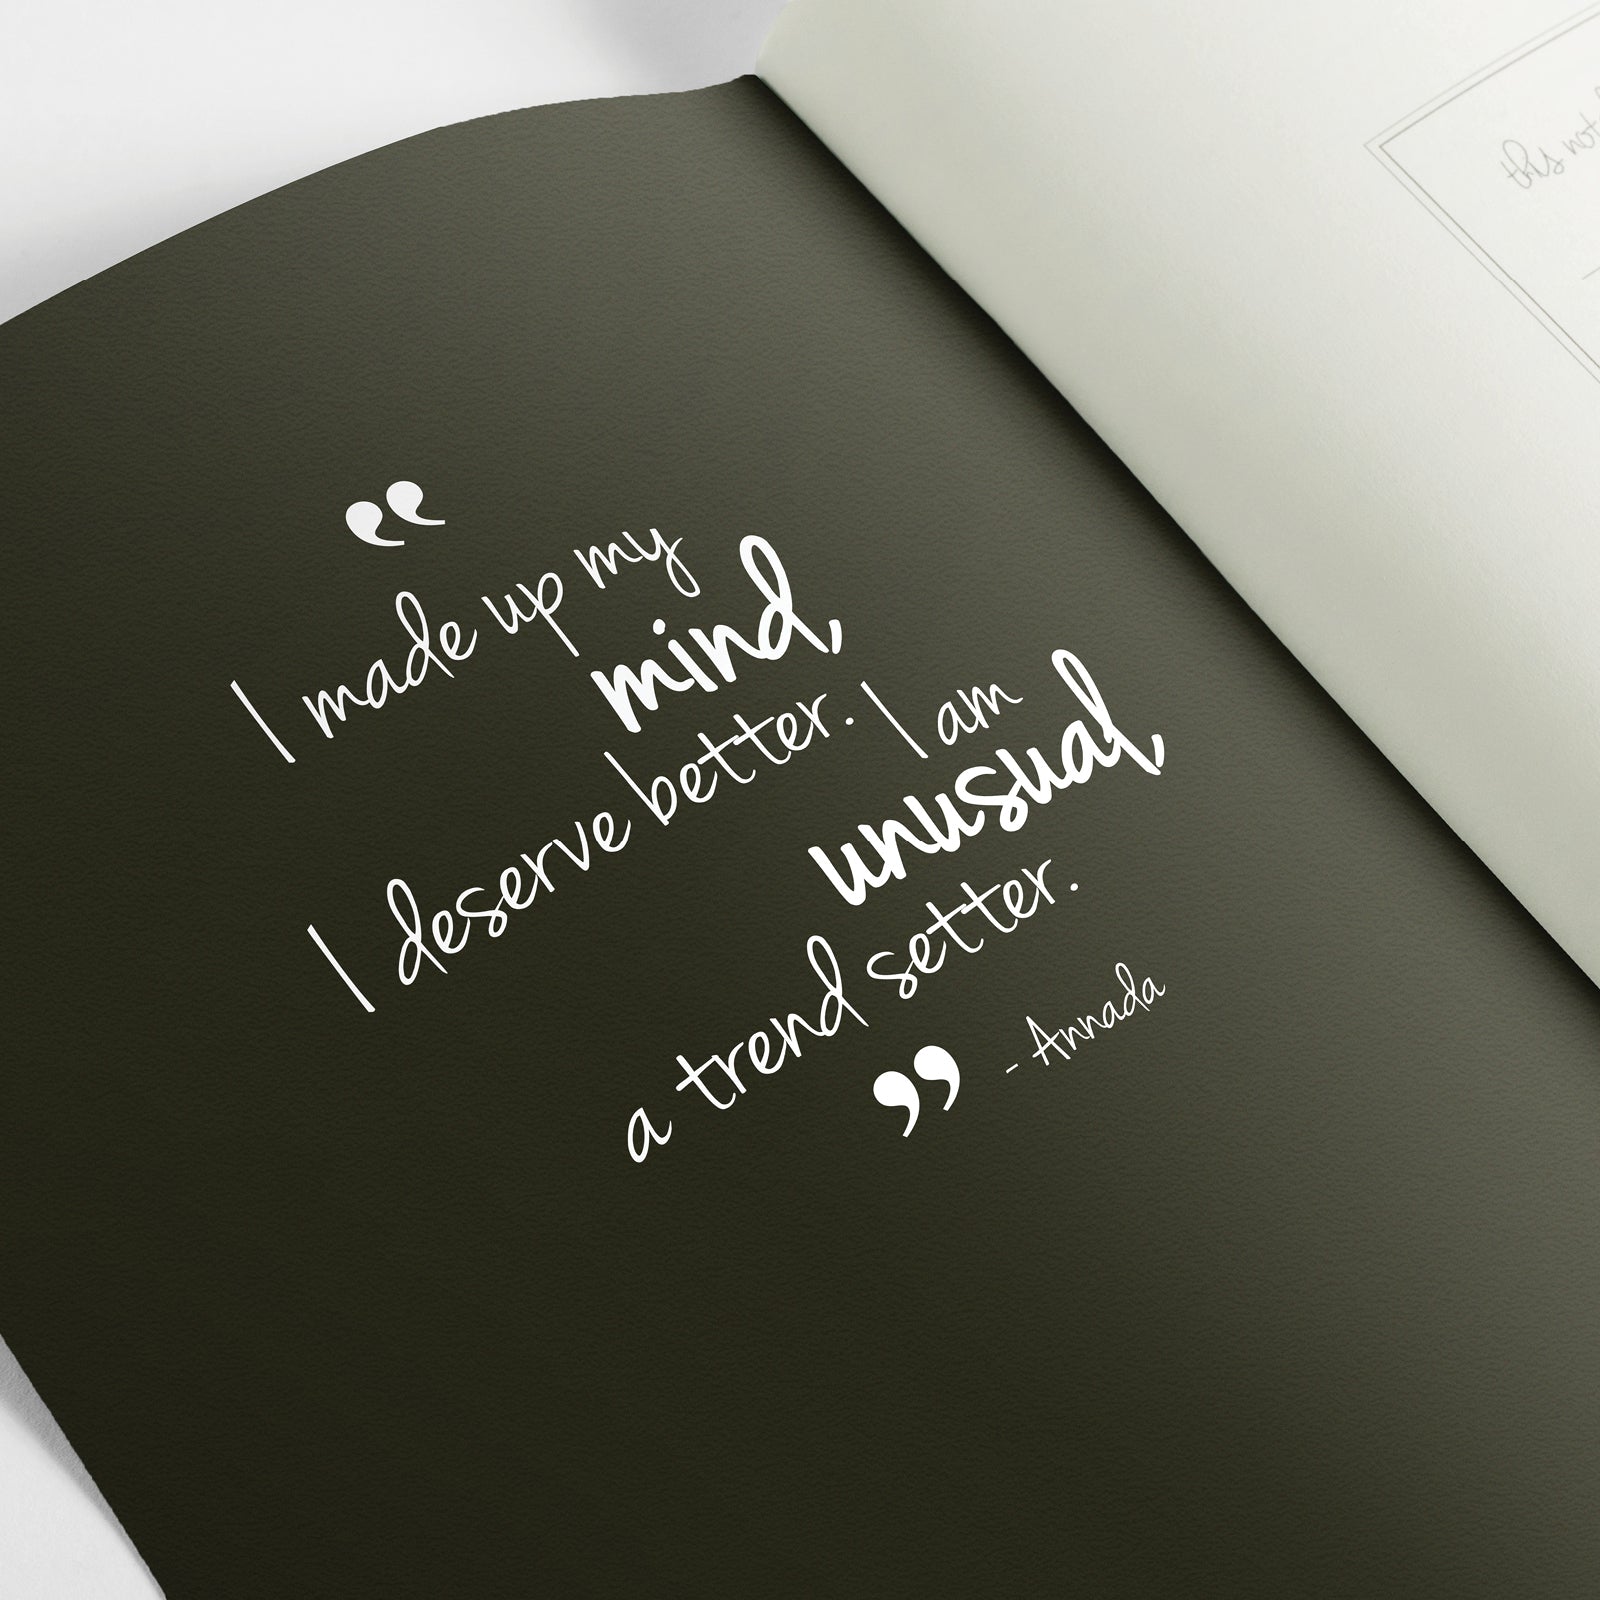 “
I made up my
mind,
I deserve better. I am
unusual,
a trend setter.
” - Annada
this not